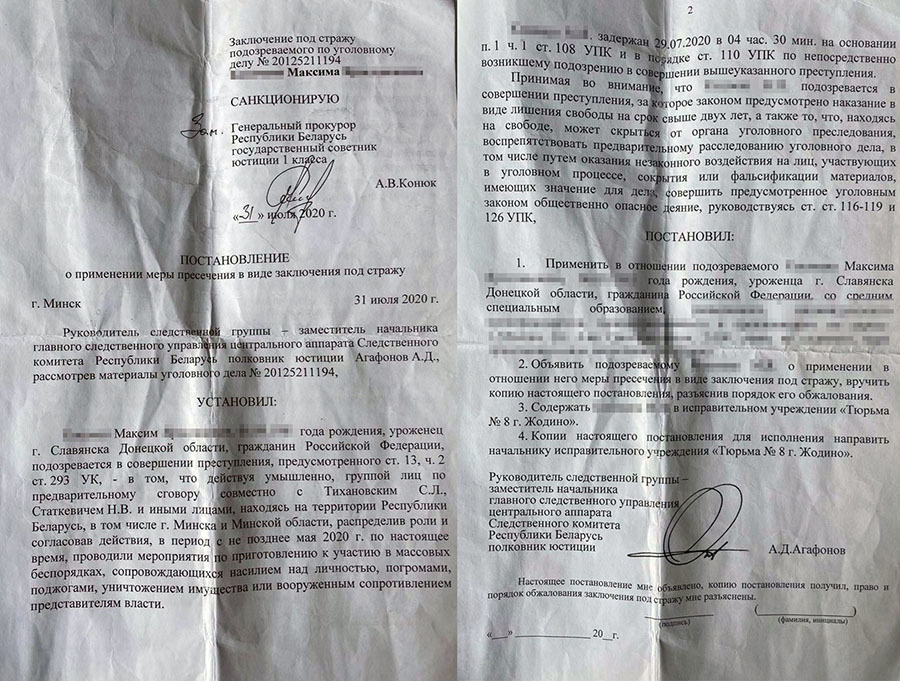 Заключение под стражу
подозреваемого по уголовному
делу № 20125211194
Максима
САНКЦИОНИРУЮ
Зам.
Генеральный прокурор
Республики Беларусь
государственный советник
юстиции 1 класса
А.В.Конюк
«31» июля 2020 г.
ПОСТАНОВЛЕНИЕ
о применении меры пресечения в виде заключения под стражу
г. Минск 31 июля 2020 г.
Руководитель следственной группы – заместитель начальника
главного следственного управления центрального аппарата Следственного
комитета Республики Беларусь полковник юстиции Агафонов А.Д.,
рассмотрев материалы уголовного дела № 20125211194,
УСТАНОВИЛ:
Максим года рождения, уроженец
г. Славянска Донецкой области, гражданин Российской Федерации,
подозревается в совершении преступления, предусмотренного ст. 13, ч. 2
ст. 293 УК, - в том, что действуя умышленно, группой лиц по
предварительному сговору совместно с Тихановским С.Л.,
Статкевичем Н.В. и иными лицами, находясь на территории Республики
Беларусь, в том числе г. Минска и Минской области, распределив роли и
согласовав действия, в период с не позднее мая 2020 г. по настоящее
время, проводили мероприятия по приготовлению к участию в массовых
беспорядках, сопровождающихся насилием над личностью, погромами,
поджогами, уничтожением имущества или вооруженным сопротивлением
представителям власти.
2
задержан 29.07.2020 в 04 час. 30 мин. на основании
п. 1 ч. 1 ст. 108 УПК и в порядке ст. 110 УПК по непосредственно
возникшему подозрению в совершении вышеуказанного преступления.
Принимая во внимание, что подозревается в
совершении преступления, за которое законом предусмотрено наказание в
виде лишения свободы на срок свыше двух лет, а также то, что, находясь
на свободе, может скрыться от органа уголовного преследования,
воспрепятствовать предварительному расследованию уголовного дела, в
том числе путем оказания незаконного воздействия на лиц, участвующих
в уголовном процессе, сокрытия или фальсификации материалов,
имеющих значение для дела, совершить предусмотренное уголовным
законом общественно опасное деяние, руководствуясь ст. ст. 116-119 и
126 УПК,
ПОСТАНОВИЛ:
1. Применить в отношении подозреваемого Максима
года рождения, уроженца г. Славянска
Донецкой области, гражданина Российской Федерации, со средним
специальным образованием,
2. Объявить подозреваемому о применении в
отношении него меры пресечения в виде заключения под стражу, вручить
копию настоящего постановления, разъяснив порядок его обжалования.
3. Содержать в исправительном учреждении «Тюрьма
№ 8 г. Жодино».
4. Копии настоящего постановления для исполнения направить
начальнику исправительного учреждения «Тюрьма № 8 г. Жодино».
Руководитель следственной группы –
заместитель начальника
главного следственного управления
центрального аппарата
Следственного комитета
Республики Беларусь
полковник юстиции А.Д.Агафонов
Настоящее постановление мне объявлено, копию постановления получил, право и
порядок обжалования заключения под стражу мне разъяснены.
(подпись) (фамилия, инициалы)
«__» ____________ 20__г.